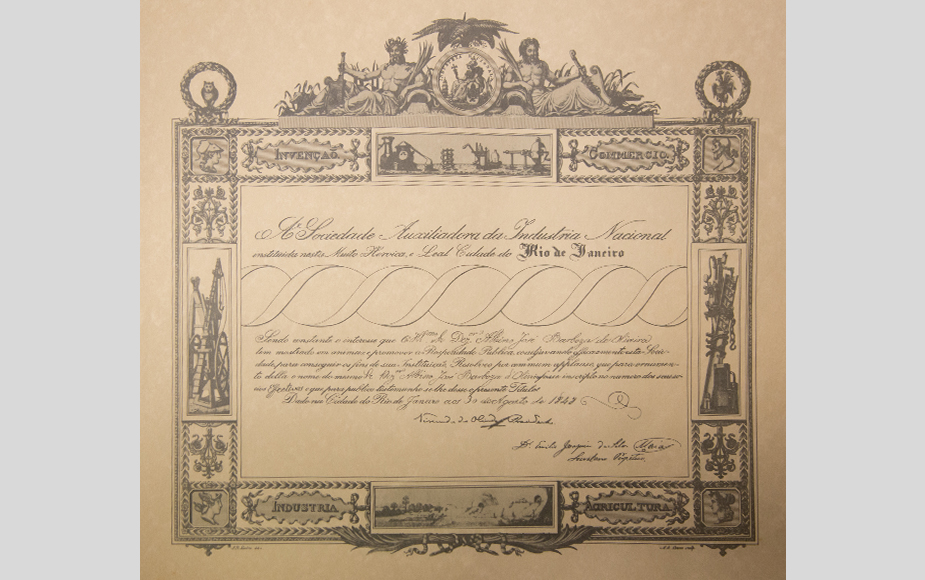 INVENÇÃO
COMMERCIO
A Sociedade Auxiliadora da Industria Nacional
instituida nesta Muito Heroica, e Leal Cidade do Rio de Janeiro
Sendo constante e interesse que o Dez.or Albino José Barboza de Oliveira
tem mostrado em animar e promover a Prosperidade Publica, coadjuvando efficazmente esta Socie
dade para conseguir os fins de sua Instituição, Resolveo por commum applauso, que para ornamen
to della o nome do mesmo Dez.or Albino José Barboza d'Oliveira fosse inscripto no numero dos seus soci
os Effectivos e que para publico testemunho se lhe désse o presente Titulo.
Dado na Cidade do Rio de Janeiro aos de Agosto de 1848
Presidente
Dr. Emilio Joaquim da Silva Maia
Secretario Perpetuo
INDUSTRIA
AGRICULTURA